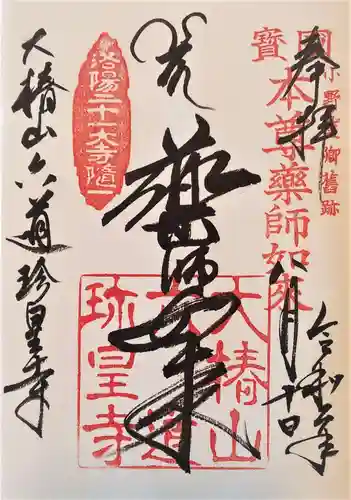 奉拝
小野篁卿舊跡
國寳
本尊藥師如來
令和元年
八月十日
薬師如来
洛陽二十一大寺随一
大椿山
六道
珍皇寺
大椿山六道珍皇寺